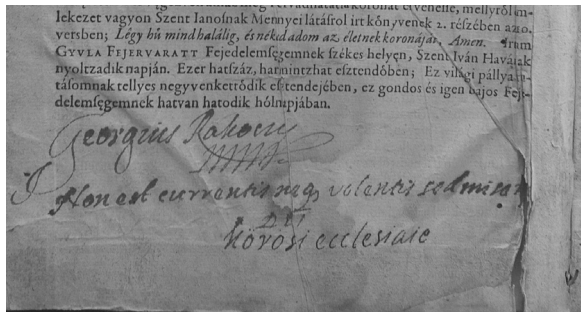 koronát el venné, mellyről em-
lekezet vagyon Szent Ianosnak Mennyei látásról irt kön,venek 2. részében a 10.
versben; Légy hű mind halálig, és néküd adom az életnek koronáját, Amen. Irám
GYVLA FEJERVARATT Fejedelemségemnek székes helyen, Szent Iván Havának
nyoltzadik napján. Ezer hatszáz, harmintzhat esztendőben; Ez világi pállya fu-
tásomnak tellyes negyvenkettődik esztendejében, ez gondos és igen bajos Feje-
delemségemnek hatvan hatodik hólnapjában.
Georgius Rakoczy
Non est currentis neq, volentis sed
Körösi ecclesiaie